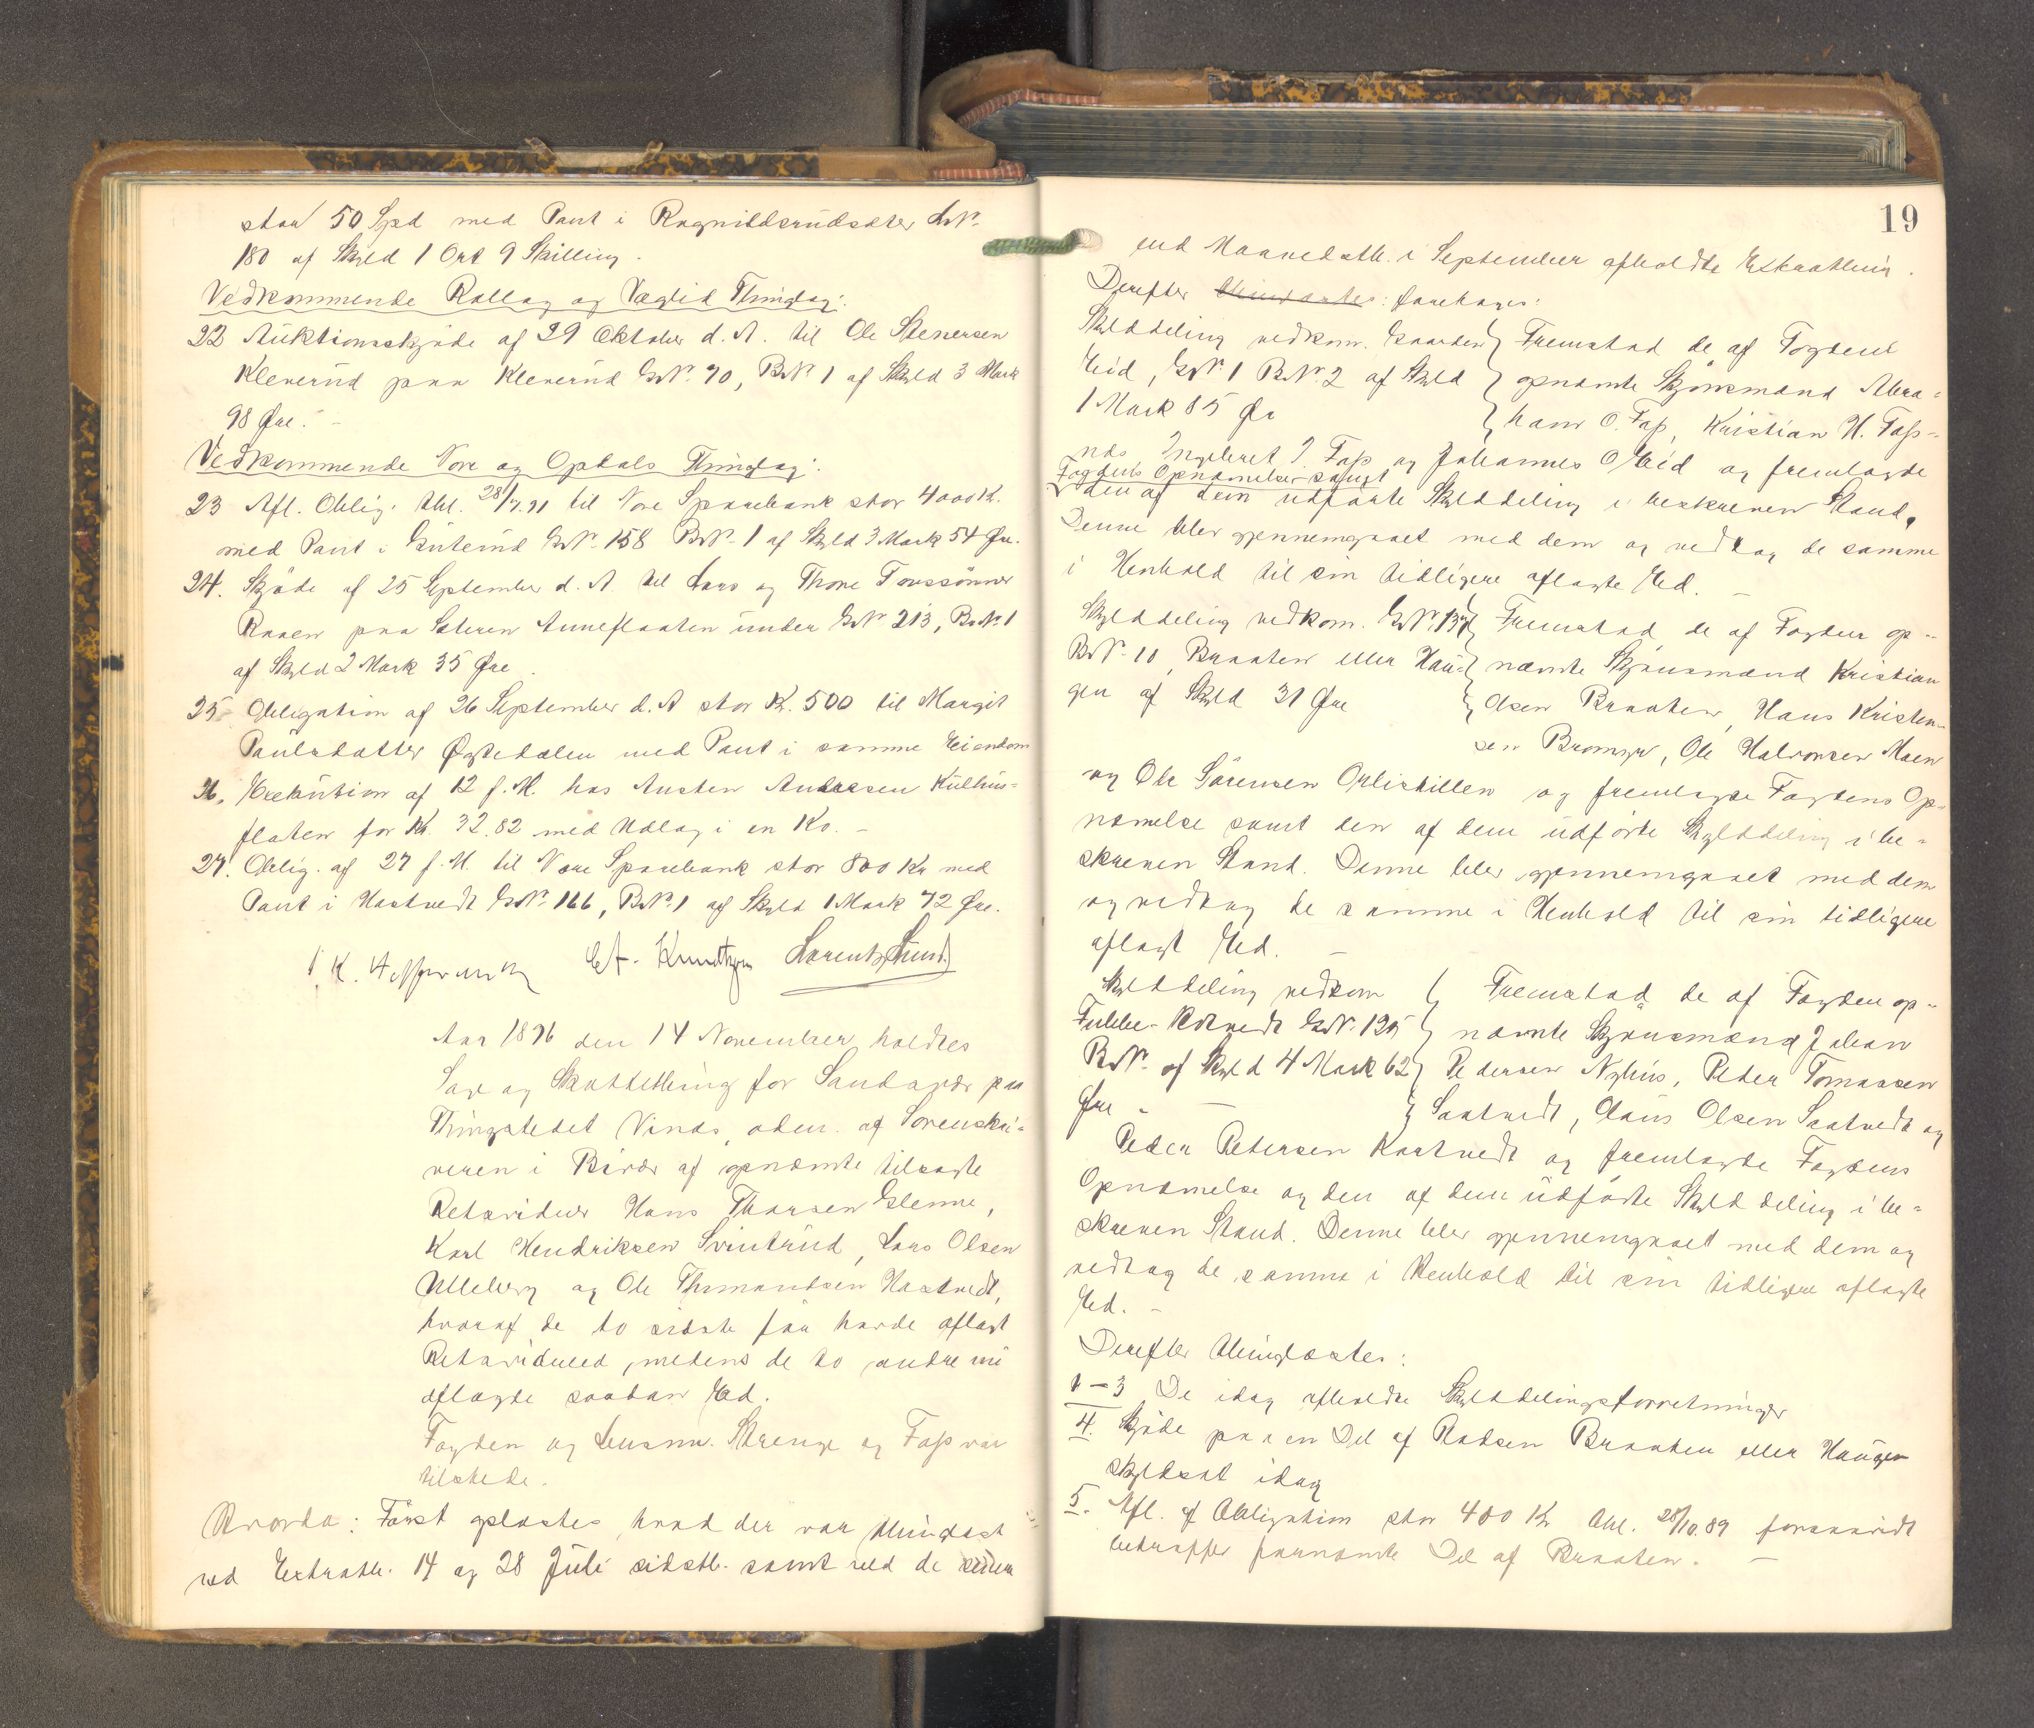 stor 50 Spd med Pant i Ragnildsrudsæter LNº
180 af Skyld 1 Ort 9 Skilling.
Vedkommende Rollag og Veglid Thinglag:
22 Auktionsskjøde af 29 Oktober d. A. til Ole Stenersen
Kleverud paa Kleverud GNº 70, BNº 1 af Skyld 3 Mark
98 Øre. -
Vedkommende Nore og Opdals Thinglag:
23 Afl. Oblig. thl. 28/7.91 til Nore Sparebank stor 4000 K.
med Pant i GNº 158 BNº 1 af Skyld 3 Mark 54 Øre.
24. Skjøde af 25 September d. A til Lars og Thore Torssønner
Raaen paa Sæteren Anneflaaten under GNº 213, BNº 1
af Skyld 2 Mark 35 Øre.
25 Obligation af 26 September d. A stor Kr. 500 til Margit
Paulsdatter Øygedalen med Pant i samme Eiendom
26. Exekution af 12 f. M. hos Austen Andersen
flaten for Kr. 32.82 med Udlæg i en Ko. -
27. Oblig. af 27 f. M. til Nore Sparebank stor 800 Kr med
Pant i Hastvedt GNº 166, BNº 1 af Skyld 1 Mark 72 Øre.
Lorentz Lund.
Aar 1896 den 14 November holdtes
Sage og Skattething for Sandsvær paa
Thingstedet Vinds, adm. af Sorenskri-
veren i Bisær af opnævnte tilsagte
Retsvidner Hans Thorsen Glenne,
Karl Hendriksen Svintrud, Lars Olsen
Ulleberg og Ole Thomandsen Hastvedt,
hvoraf de to sidste før havde aflagt
Retsvidneed, medens de to andre nu
aflagde saadan Ed.
Fogden og Lensm. Strenge og Foss var
tilstede.
Hvorda: Først oplæstes hvad der var thinglæst
ved Extrath. 14 og 28 Juli sidstl. samt ved de siden
19
end Maanedsth. i September afholdte Extrathing.
Derefter thinglæstes: foretoges:
Skylddeling vedkom. Gaarden } Fremstod de af Fogden
Eid, GNº 1 BNº 2 af Skyld } opnævnte Skjønsmænd Abra-
1 Mark 85 Øre } ham O. Foss, Kristian H. Foss-
næs, Ingebret I. Foss og Johannes O Eid og fremlagde
Fogdens Opnævnelse samt
den af dem udførte Skylddeling i beskreven Stand.
Denne blev gjennemgaaet med dem og vedtog de samme
i Henhold til sin tidligere aflagte Ed. -
Skylddeling vedkom. GNº 137 } Fremstod de af Fogden op-
BNº 10 Braaten eller Hau- } nævnte Skjønsmænd Kristian
gen af Skyld 31 Øre } Olsen Braaten, Hans Kristen-
sen Bromyr, Ole Halvorsen Moen
og Ole Sørensen og fremlagde Fogdens Op-
nævnelse samt den af dem udførte Skylddeling i be-
skreven Stand. Denne blev gjennemgaaet med dem
og vedtog de samme i Henhold til sin tidligere
aflagt Ed. -
Skylddeling vedkom } Fremstod de af Fogden op-
GNº 125 } nævnte Skjønsmænd Johan
BNº af Skyld 4 Mark 62 } Pedersen Nyhus, Peder Tomassen
Øre. - } Saatvedt, Claus Olsen Saatvedt og
Peder Petersen Kortvedt og fremlagde Fogdens
Opnævnelse og den af dem udførte Skylddeling i be-
skreven Stand. Denne blev gjennemgaaet med dem og
vedtog de samme i Henhold til sin tidligere aflagte
Ed. -
Derefter thinglæstes:
1-3 De idag afholdte Skylddelingsforretninger
4. Skjøde paa en Del af Braaten eller Haugen
skyldsat idag
5. Afl. af Obligation stor 400 Kr thl. 28/10.89 forsaavidt
betræffer fornævnte Del af Braaten. -